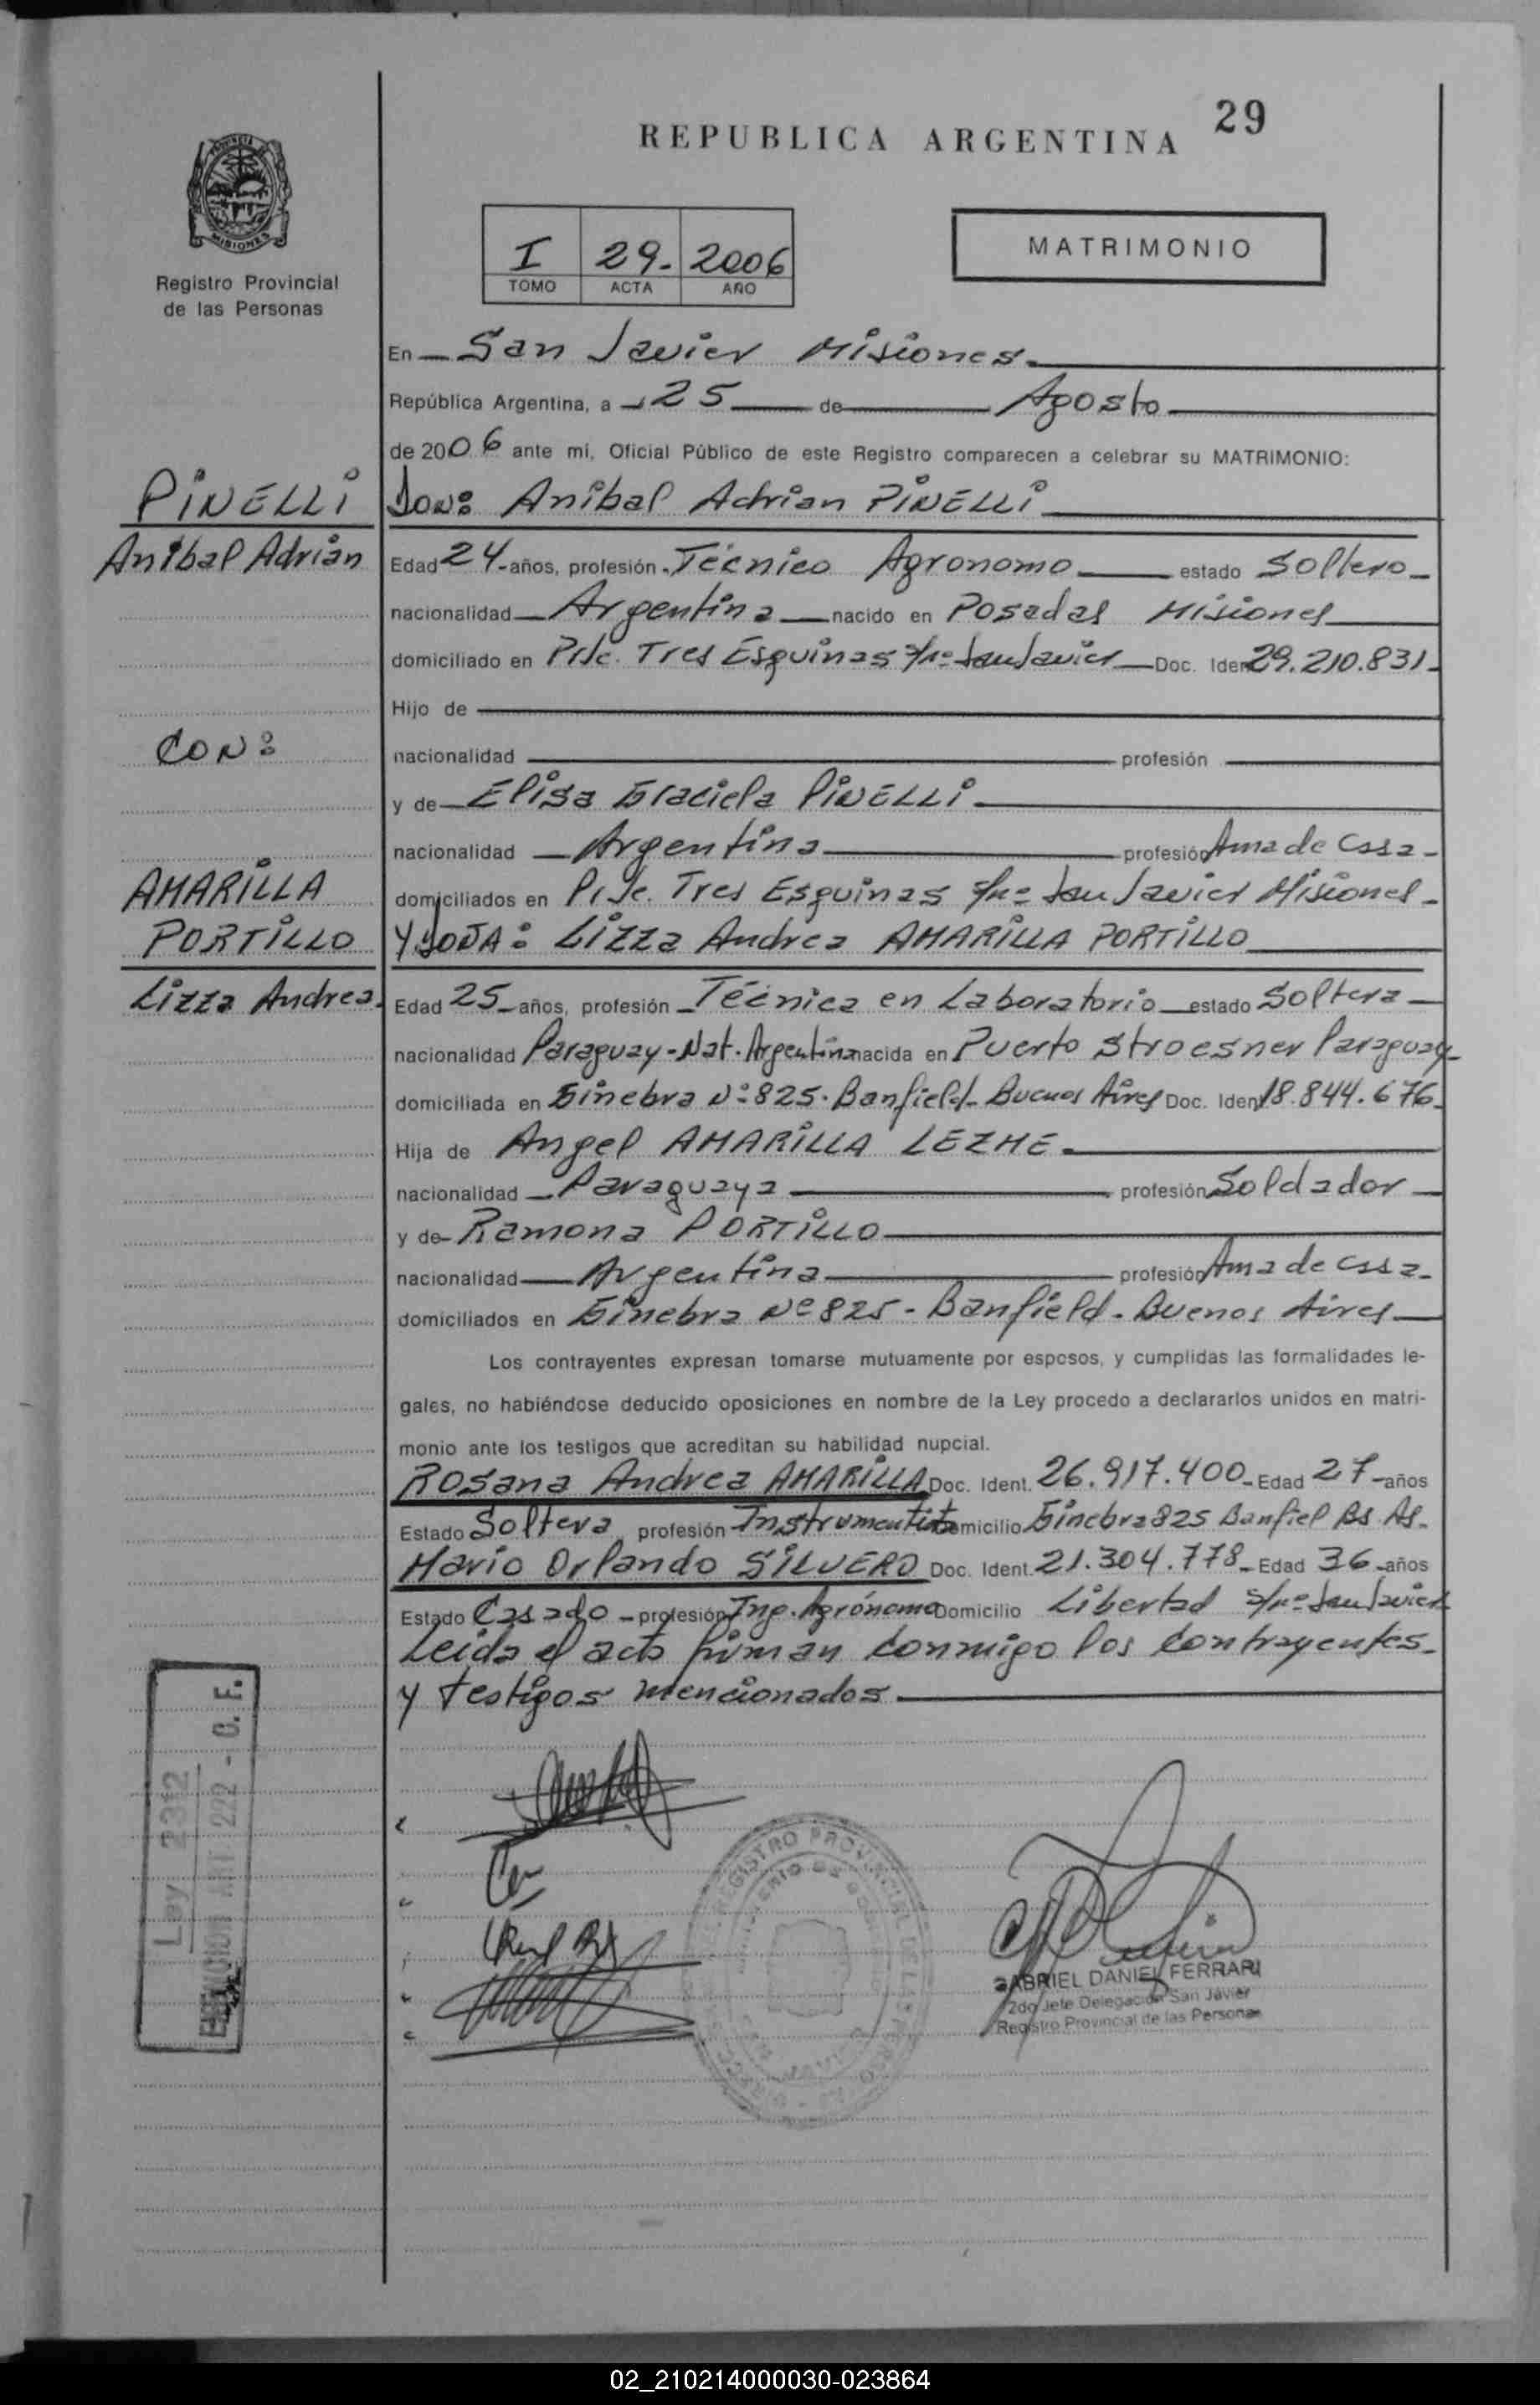 29
REPUBLICA ARGENTINA
PROVINCIA DE
MISIONES
Registro Provincial
de las Personas
I 29- 2006
TOMO ACTA AÑO
MATRIMONIO
En San Javier Misiones
República Argentina, a 25 de Agosto
de 2006 ante mí, Oficial Público de este Registro comparecen a celebrar su MATRIMONIO:
PINELLI
Anibal Adrian
DON: Anibal Adrian PINELLI
Edad 24-años, profesión Técnico Agronomo estado Soltero
nacionalidad Argentina nacido en Posadas Misiones
domiciliado en Pje. Tres Esquinas s/nº San Javier Doc. Iden 29.210.831
Hijo de
CON:
nacionalidad profesión
y de Elisa Graciela PINELLI
nacionalidad Argentina profesión Ama de Casa
AMARILLA
PORTILLO
Lizza Andrea
domiciliados en Pje. Tres Esquinas s/nº San Javier Misiones
Y DOÑA: Lizza Andrea AMARILLA PORTILLO
Edad 25-años, profesión Técnica en Laboratorio estado Soltera
nacionalidad Paraguay-Nat. Argentina nacida en Puerto Stroesner Paraguay
domiciliada en Ginebra Nº 825. Banfield- Buenos Aires Doc. Iden 18.844.676
Hija de Angel AMARILLA LEZME
nacionalidad Paraguaya profesión Soldador
y de Ramona PORTILLO
nacionalidad Argentina profesión Ama de casa
domiciliados en Ginebra Nº 825 - Banfield - Buenos Aires
Los contrayentes expresan tomarse mutuamente por esposos, y cumplidas las formalidades le-
gales, no habiéndose deducido oposiciones en nombre de la Ley procedo a declararlos unidos en matri-
monio ante los testigos que acreditan su habilidad nupcial.
Rosana Andrea AMARILLA Doc. Ident. 26.917.400- Edad 27-años
Estado Soltera profesión Instrumentista Domicilio Ginebra 825 Banfiel Bs As.
Mario Orlando SILVERO Doc. Ident. 21.304.778- Edad 36-años
Estado Casado - profesión Ing. Agrónomo Domicilio Libertad s/nº San Javier
Leida el acta firman conmigo los contrayentes
y testigos mencionados
Ley 2312
EXENCION ART 222 - C. F.
REGISTRO PROVINCIAL DE LAS PERSONAS
GABRIEL DANIEL FERRARI
2do Jefe Delegación San Javier
Registro Provincial de las Personas
02_210214000030-023864